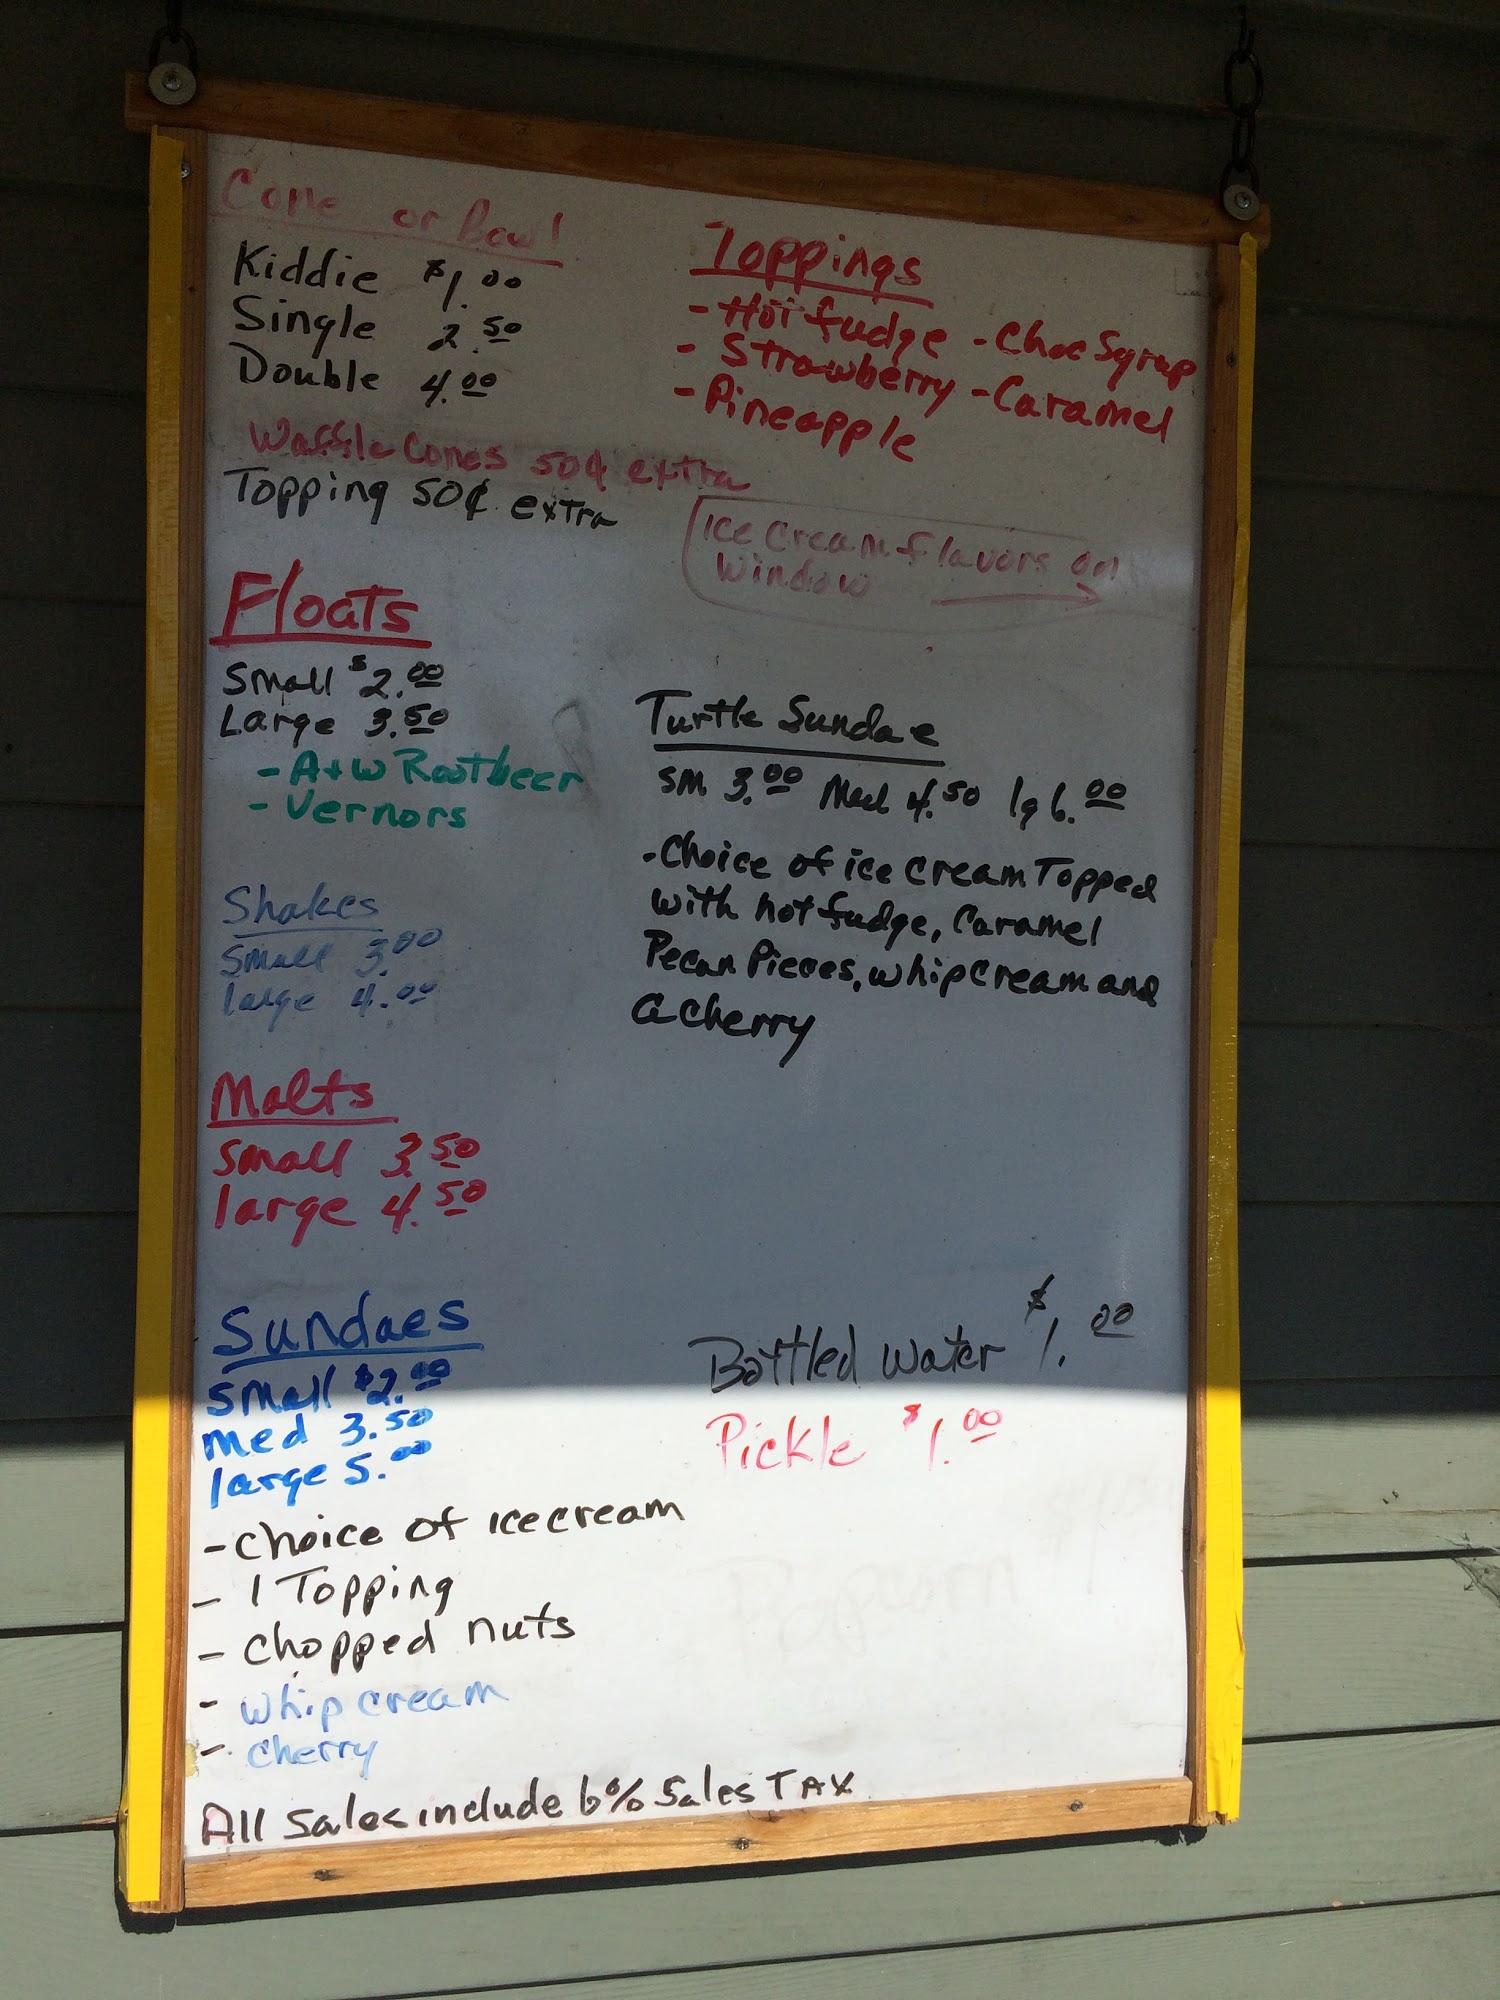 Cone or Bowl
Kiddie $1.00
Single 2.50
Double 4.00
Waffle Cones 50¢ extra
Topping 50¢ extra
Floats
Small $2.00
Large 3.50
- A+W Rootbeer
- Vernors
Shakes
Small 3.00
large 4.00
Malts
small 3.50
large 4.50
Sundaes
small $2.00
med 3.50
large 5.00
- choice of icecream
- 1 Topping
- chopped nuts
- whip cream
- cherry
All sales include 6% Sales TAX
Toppings
- Hot fudge - Choc Syrup
- Strawberry - Caramel
- Pineapple
Ice Cream flavors on
Window
Turtle Sundae
sm 3.00 Med 4.50 lg 6.00
- Choice of ice cream Topped
with hot fudge, Caramel
Pecan Pieces, whip cream and
a cherry
Bottled water $1.00
Pickle $1.00